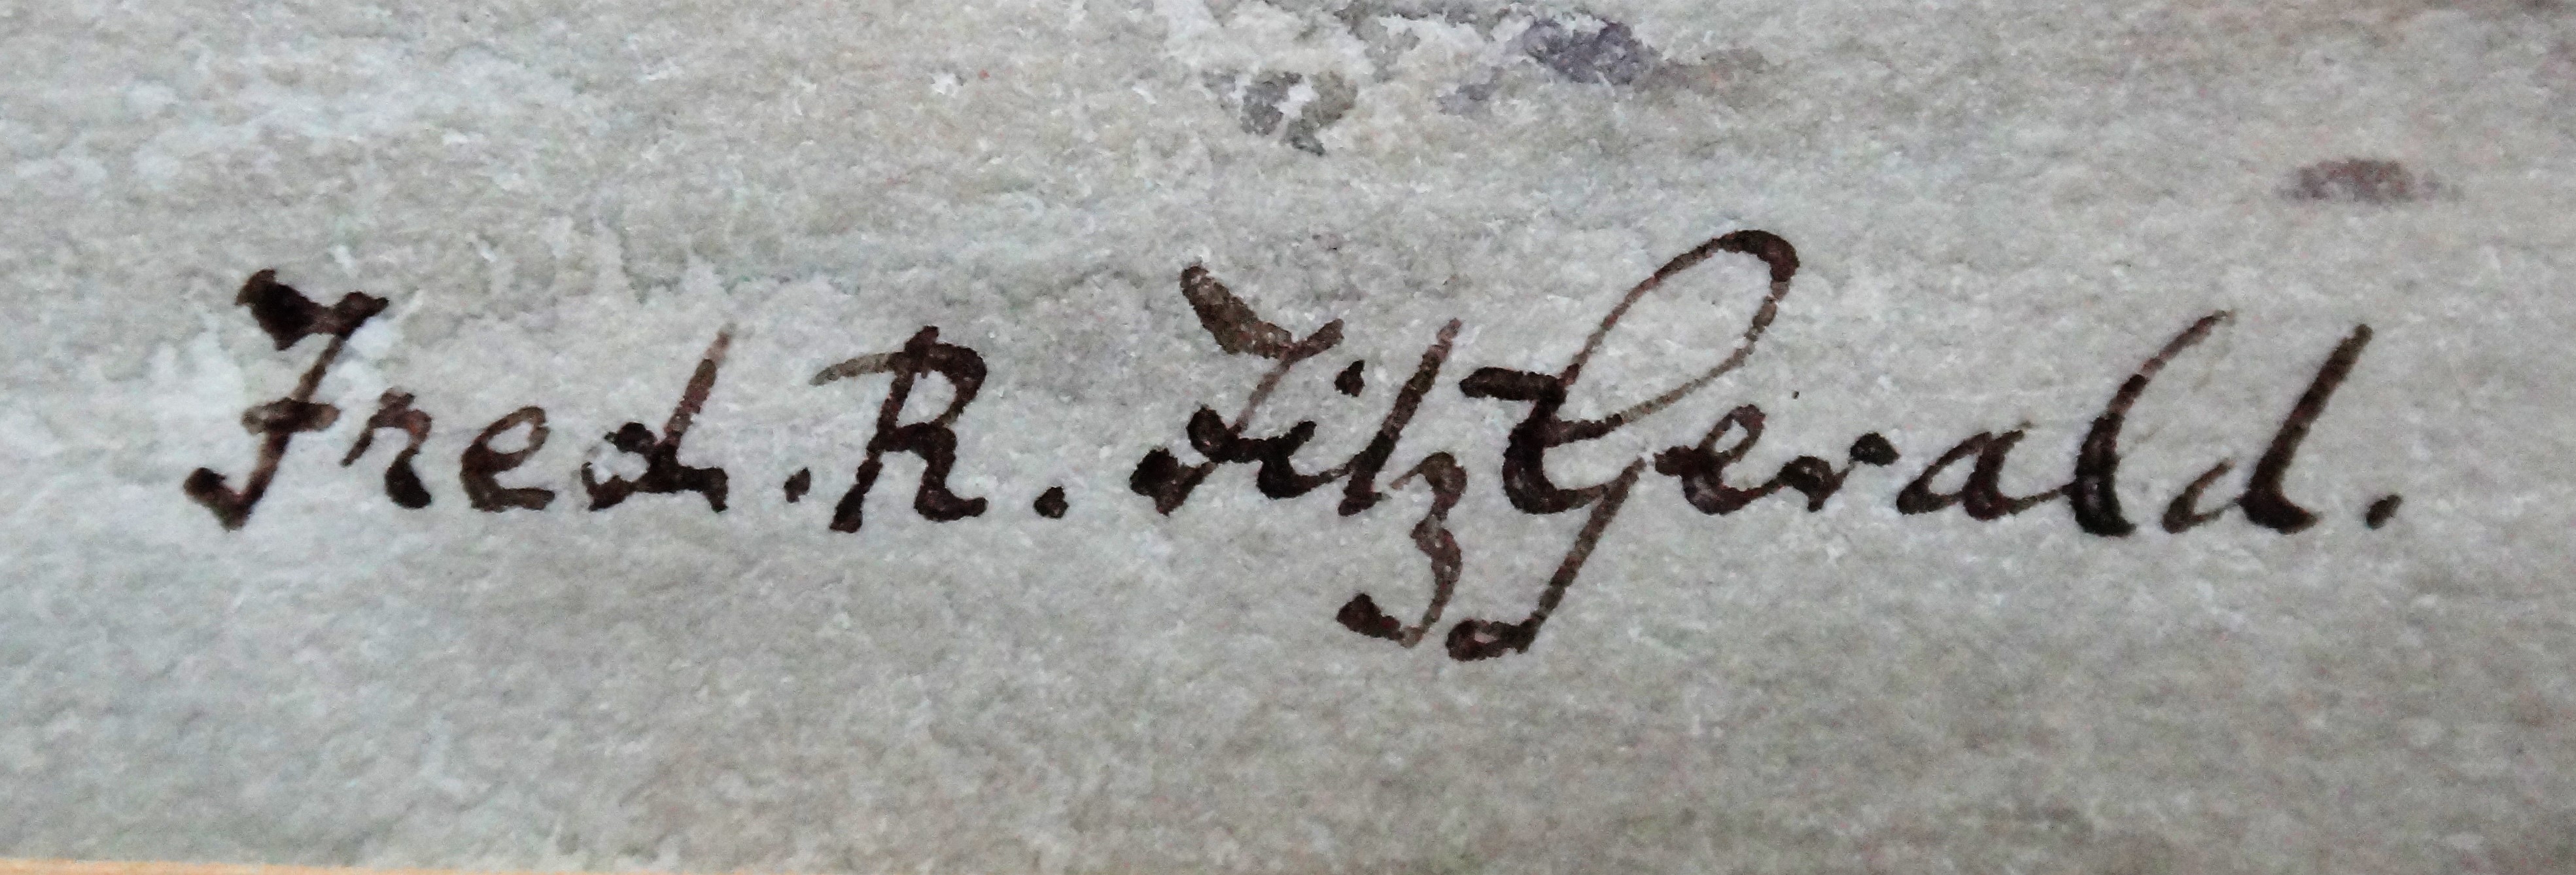 Fred. R. FitzGerald.